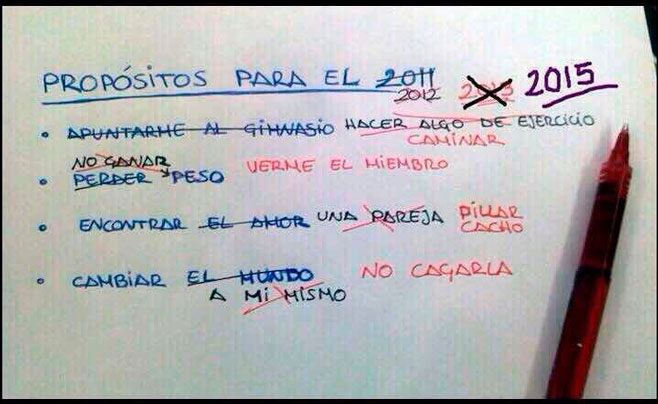 PROPÓSITOS PARA EL 2011 2013 2015
2012
• APUNTARME AL GIMNASIO HACER ALGO DE EJERCICIO
CAMINAR
NO GANAR VERME EL MIEMBRO
• PERDER PESO
• ENCONTRAR EL AMOR UNA PAREJA PILLAR
CACHO
• CAMBIAR EL MUNDO NO CAGARLA
A MI MISMO